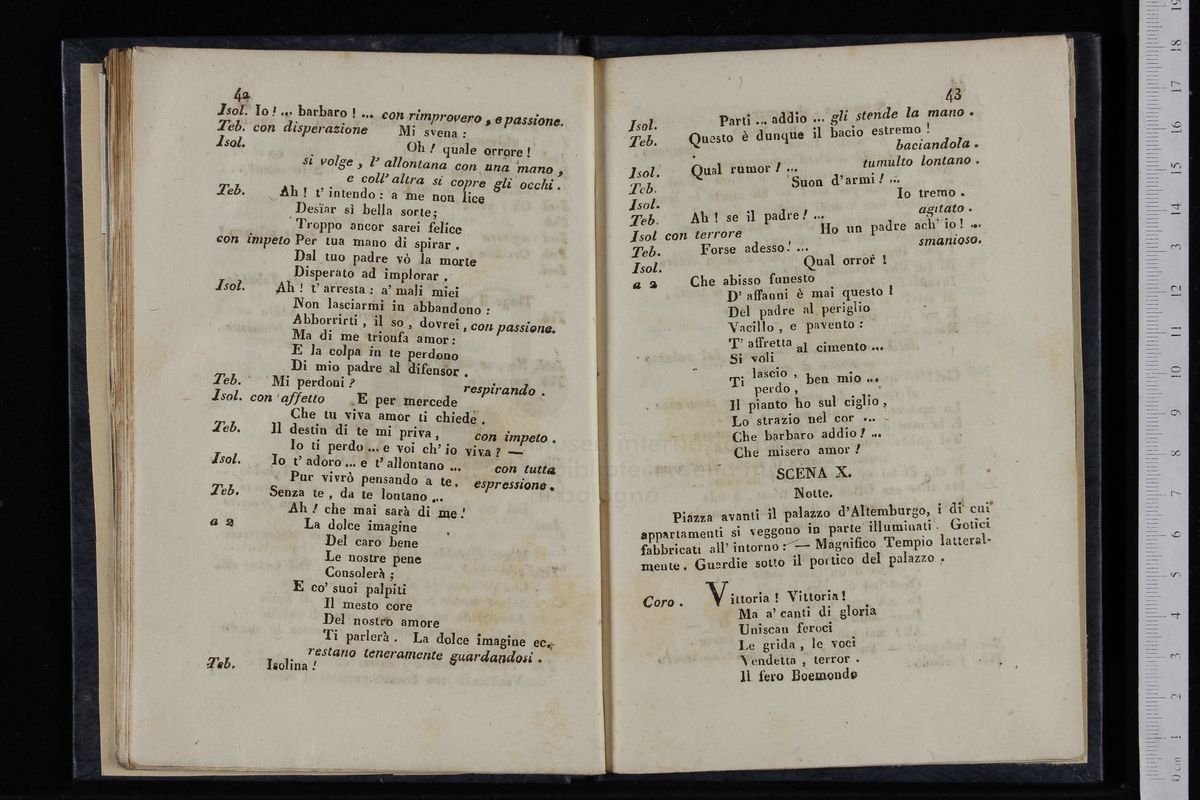 42
Isol. Io! ... barbaro! ... con rimprovero, e passione.
Teb. con disperazione Mi svena:
Isol. Oh! quale orrore!
si volge, l' allontana con una mano,
e coll' altra si copre gli occhi.
Teb. Ah! t' intendo: a me non lice
Desïar sì bella sorte;
Troppo ancor sarei felice
con impeto Per tua mano di spirar.
Dal tuo padre vò la morte
Disperato ad implorar.
Isol. Ah! t' arresta: a' mali miei
Non lasciarmi in abbandono:
Abborrirti, il so, dovrei, con passione.
Ma di me trionfa amor:
E la colpa in te perdono
Di mio padre al difensor.
Teb. Mi perdoni? respirando.
Isol. con affetto E per mercede
Che tu viva amor ti chiede.
Teb. Il destin di te mi priva, con impeto.
Io ti perdo ... e voi ch' io viva? —
Isol. Io t' adoro ... e t' allontano ... con tutta
Pur vivrò pensando a te. espressione.
Teb. Senza te, da te lontano ...
Ah! che mai sarà di me!
a 2 La dolce imagine
Del caro bene
Le nostre pene
Consolerà;
E co' suoi palpiti
Il mesto core
Del nostro amore
Ti parlerà. La dolce imagine ec.
restano teneramente guardandosi.
Teb. Isolina!
43
Isol. Parti ... addio ... gli stende la mano.
Teb. Questo è dunque il bacio estremo!
baciandola.
Isol. Qual rumor! ... tumulto lontano.
Teb. Suon d'armi! ...
Isol. Io tremo.
Teb. Ah! se il padre! ... agitato.
Isol con terrore Ho un padre ach' io! ...
Teb. Forse adesso! ... smanioso.
Isol. Qual orror!
a 2 Che abisso funesto
D' affanni è mai questo!
Del padre al periglio
Vacillo, e pavento:
T' affretta al cimento ...
Si voli
Ti lascio, ben mio ...
perdo,
Il pianto ho sul ciglio,
Lo strazio nel cor ...
Che barbaro addio! ...
Che misero amor!
SCENA X.
Notte.
Piazza avanti il palazzo d'Altemburgo, i di cui
appartamenti si veggono in parte illuminati. Gotici
fabbricati all' intorno: — Magnifico Tempio latteral-
mente. Guardie sotto il portico del palazzo.
Coro. Vittoria! Vittoria!
Ma a' canti di gloria
Uniscan feroci
Le grida, le voci
Vendetta, terror.
Il fero Boemondo